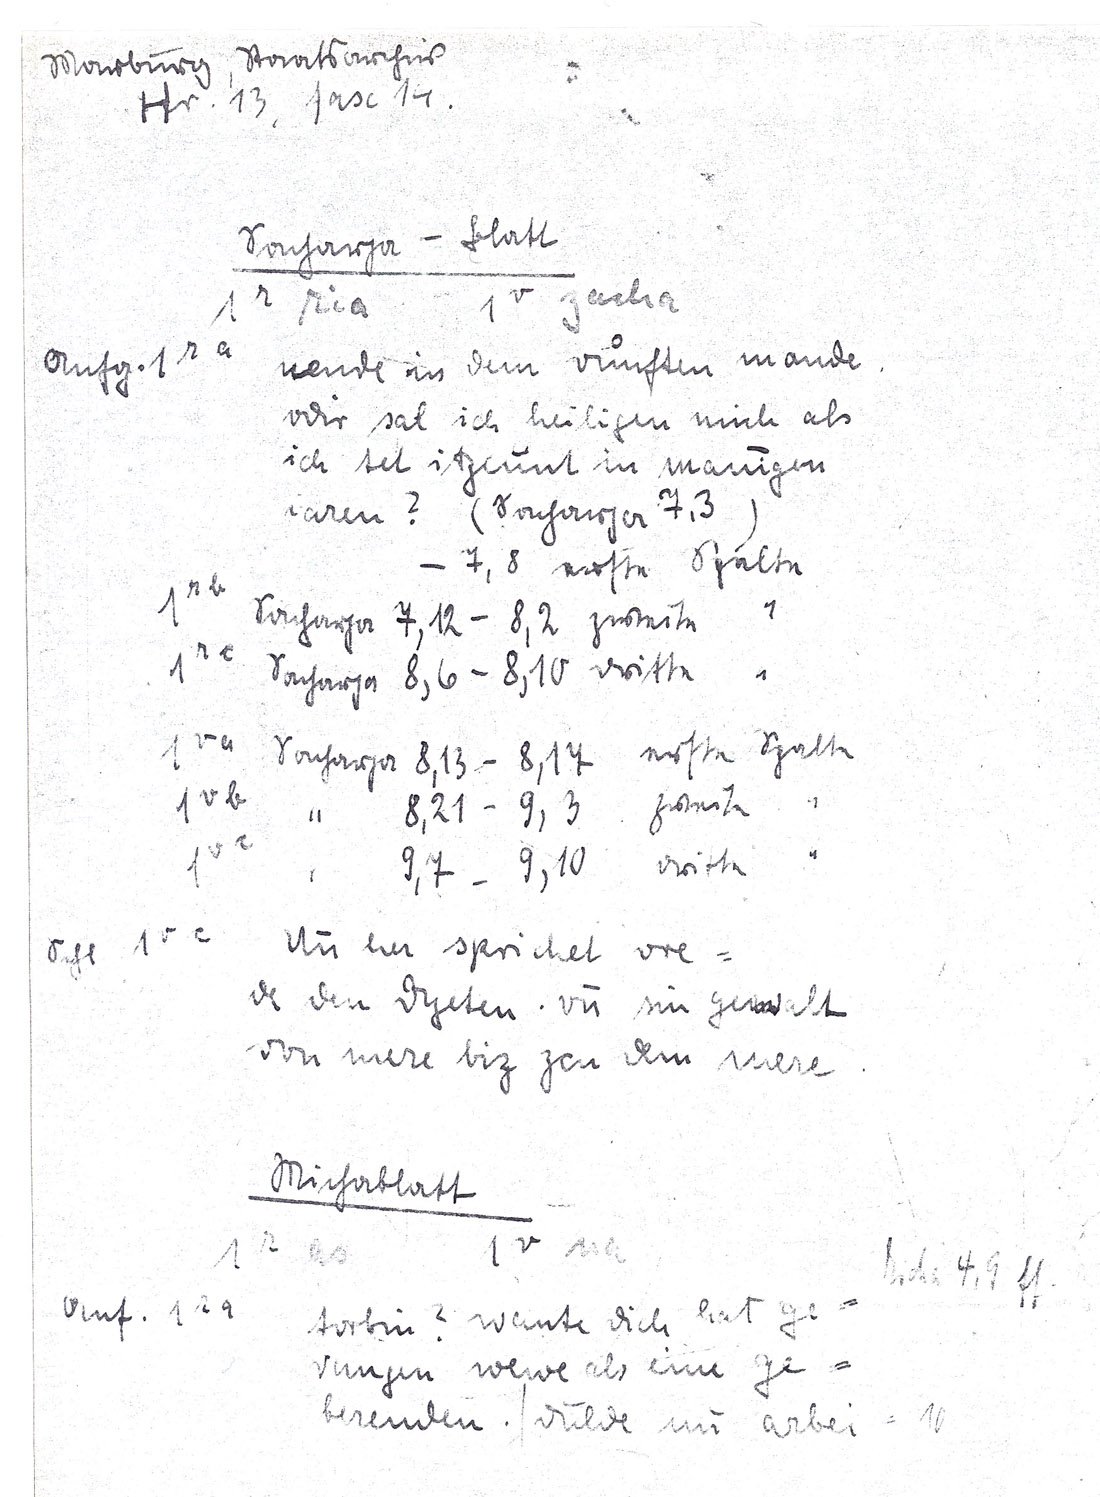 Marburg, Staatsarchiv
Hr. 13, fasc 14.
Sacharja - Blatt
1 r ria 1 v zacha
Anfg. 1 r a nende in dem vůnften mande.
odir sal ich heiligen mich als
ich tet itzcunt in manīgen
iaren? (Sacharja 7,3)
- 7,8 erste Spalte
1 r b Sacharja 7,12 - 8,2 zweite "
1 r c Sacharja 8,6 - 8,10 dritte "
1 v a Sacharja 8,13 - 8,17 erste Spalte
1 v b " 8,21 - 9,3 zweite "
1 v c " 9,7 - 9,10 dritte "
Schl 1 v c Vn̄ her sprichet vre =
de den dyeten. vn̄ sin gewalt
von mere biz zcu dem mere.
Michablatt
1 r as 1 v na
Micha 4,9 ff.
Anf. 1 r a torbin? wante dich hat ge =
vangen wewe als eine ge =
berenden. / dulde nū arbei = 10